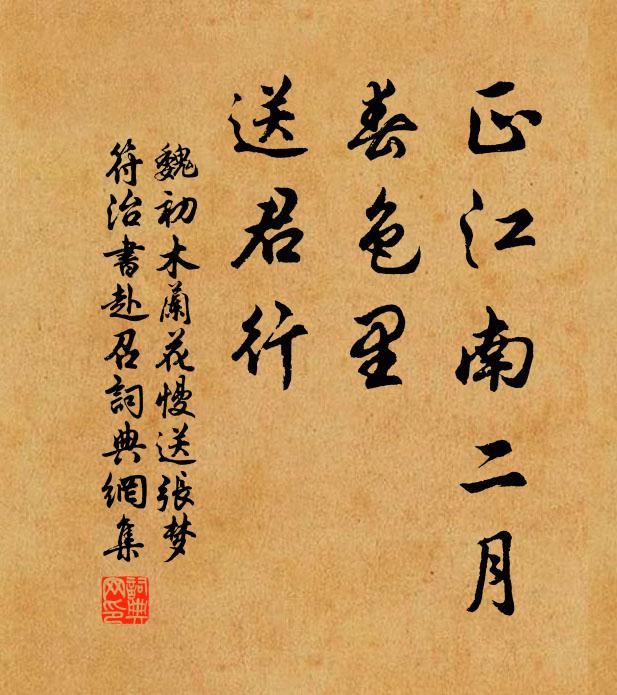 正江南二月
春色里
送君行
魏初木蘭花慢送張梦
符治書赴召詞典網集
詞典网印